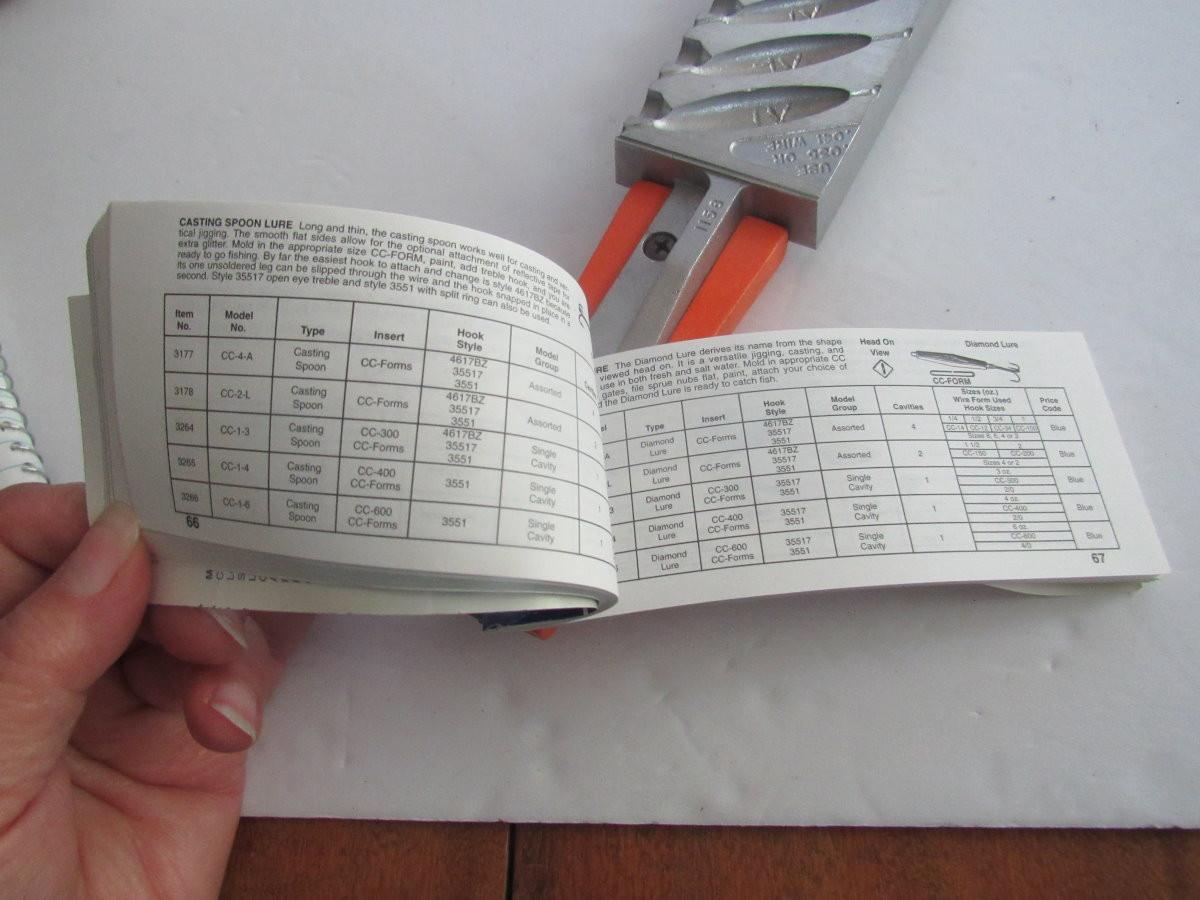 CASTING SPOON LURE Long and thin, the casting spoon works well for casting and ver-
tical jigging. The smooth flat sides allow for the optional attachment of reflective tape for
extra glitter. Mold in the appropriate size CC-FORM, paint, add treble hook, and you are
ready to go fishing. By far the easiest hook to attach and change is style 4617BZ because
its one unsoldered leg can be slipped through the wire and the hook snapped in place in a
second. Style 35517 open eye treble and style 3551 with split ring can also be used.
Item No. Model No. Type Insert Hook Style Model Group
3177 CC-4-A Casting Spoon CC-Forms 4617BZ 35517 3551 Assorted
3178 CC-2-L Casting Spoon CC-Forms 4617BZ 35517 3551 Assorted 2
3264 CC-1-3 Casting Spoon CC-300 CC-Forms 4617BZ 35517 3551 Single Cavity
3265 CC-1-4 Casting Spoon CC-400 CC-Forms 3551 Single Cavity 1
3266 CC-1-6 Casting Spoon CC-600 CC-Forms 3551 Single Cavity 1
66
RE The Diamond Lure derives its name from the shape
viewed head on. It is a versatile jigging, casting, and
use in both fresh and salt water. Mold in appropriate CC
gates, file sprue nubs flat, paint, attach your choice of
the Diamond Lure is ready to catch fish.
Head On View
Diamond Lure
CC-FORM
Type Insert Hook Style Model Group Cavities Sizes (oz.) Wire Form Used Hook Sizes Price Code
Diamond Lure CC-Forms 4617BZ 35517 3551 Assorted 4 1/4 1/2 3/4 1 CC-14 CC-12 CC-34 CC-100 Sizes 8, 6, 4 or 2 Blue
Diamond Lure CC-Forms 4617BZ 35517 3551 Assorted 2 1 1/2 2 CC-150 CC-200 Sizes 4 or 2 Blue
Diamond Lure CC-300 CC-Forms 35517 3551 Single Cavity 1 3 oz. CC-300 2/0 Blue
Diamond Lure CC-400 CC-Forms 35517 3551 Single Cavity 1 4 oz. CC-400 2/0 Blue
Diamond Lure CC-600 CC-Forms 35517 3551 Single Cavity 1 6 oz. CC-600 4/0 Blue
67
USE
.035 OR
.051 WIRE
1158